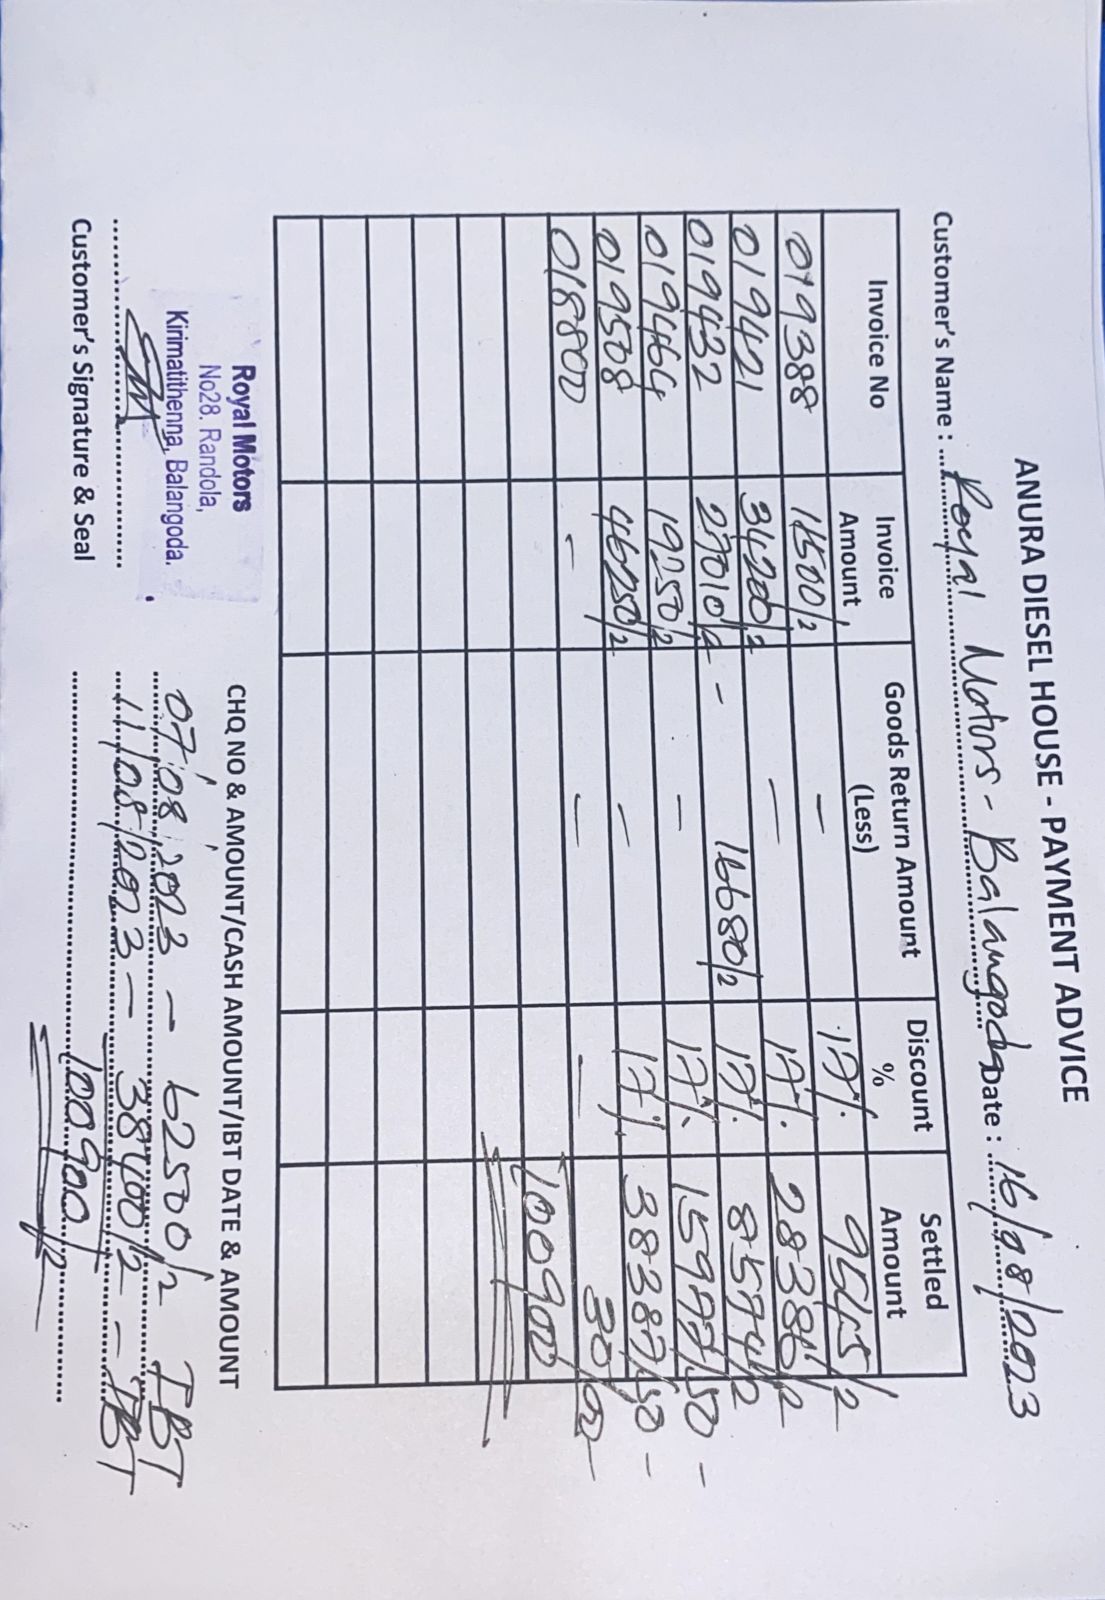 ANURA DIESEL HOUSE - PAYMENT ADVICE
Customer's Name : Royal Motors - Balangoda Date : 16/08/2023
Invoice No Invoice Amount Goods Return Amount (Less) Discount % Settled Amount
019388 11500/2 - 17%. 9545/2
019421 34200/2 - 17%. 28386/2
019432 27010/2 - 16680/2 17%. 8574/2
019464 19250/2 - 17%. 15977/50 -
019508 46250/2 - 17%. 38387/50 -
018800 - - - 30/00
100900
Royal Motors
No28. Randola,
Kirimatithenna, Balangoda.
Customer's Signature & Seal
CHQ NO & AMOUNT/CASH AMOUNT/IBT DATE & AMOUNT
07/08/2023 - 62500/2 IBT
11/08/2023 - 38400/2 - IBT
100900/2